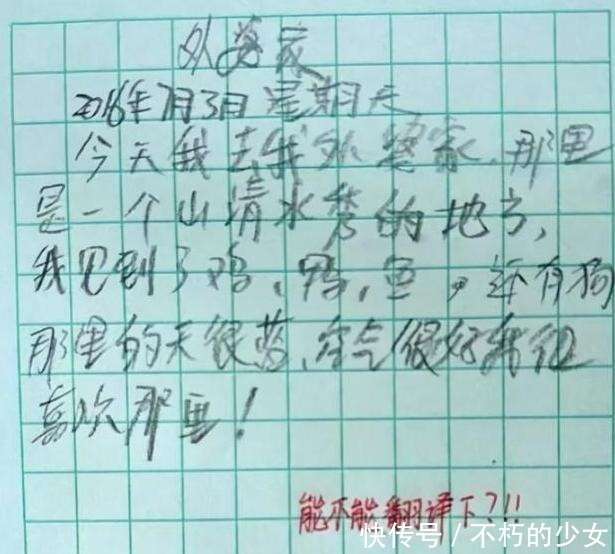 外婆家
2016年7月3日 星期天
今天我去我外婆家,那里
是一个山清水秀的地方,
我见到了鸡、鸭、鱼,还有狗
那里的天很蓝、空气很好我很
喜欢那里!
能不能翻译下?!!
快传号/不朽的少女